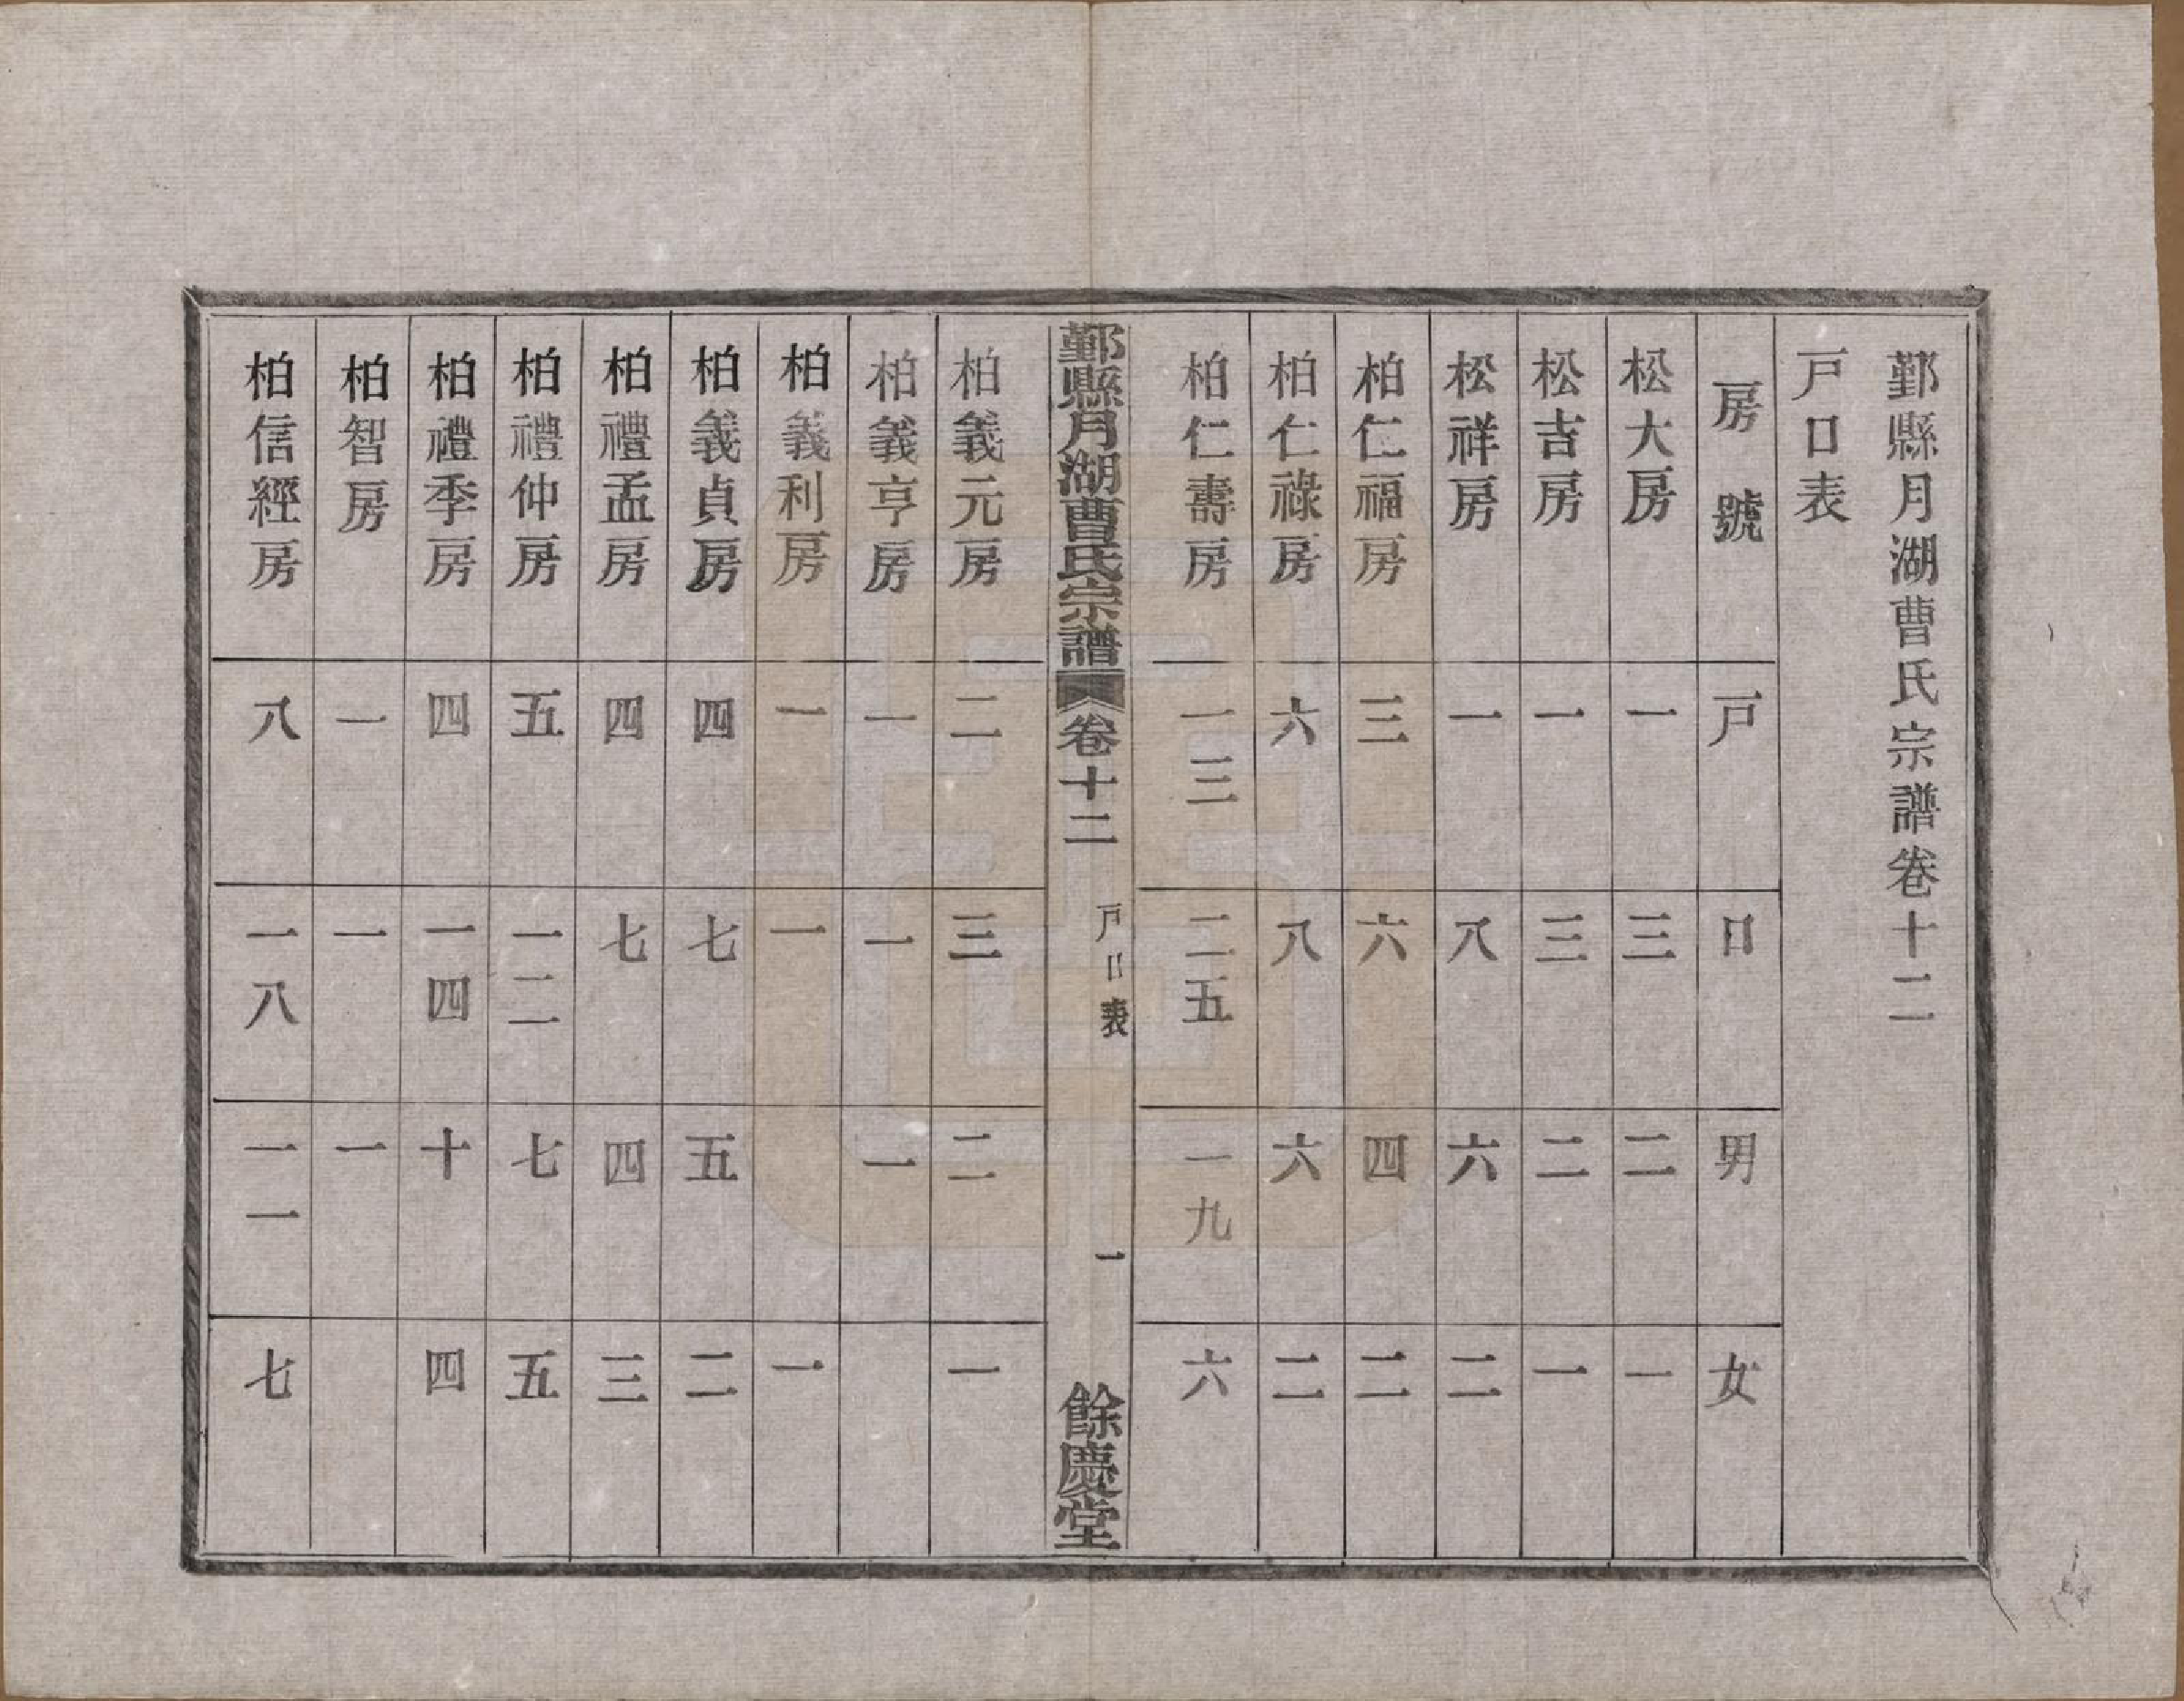 鄞縣月湖曹氏宗譜卷十二
戸口表
房號 戸 口 男 女
松大房 一 三 二 一
松吉房 一 三 二 一
松祥房 一 八 六 二
柏仁福房 三 六 四 二
柏仁祿房 六 八 六 二
柏仁壽房 一三 二五 一九 六
鄞縣月湖曹氏宗譜 卷十二 戸口表 一 餘慶堂
柏義元房 二 三 二 一
柏義亨房 一 一 一
柏義利房 一 一 一
柏義貞房 四 七 五 二
柏禮孟房 四 七 四 三
柏禮仲房 五 一二 七 五
柏禮季房 四 一四 十 四
柏智房 一 一 一
柏信經房 八 一八 一一 七